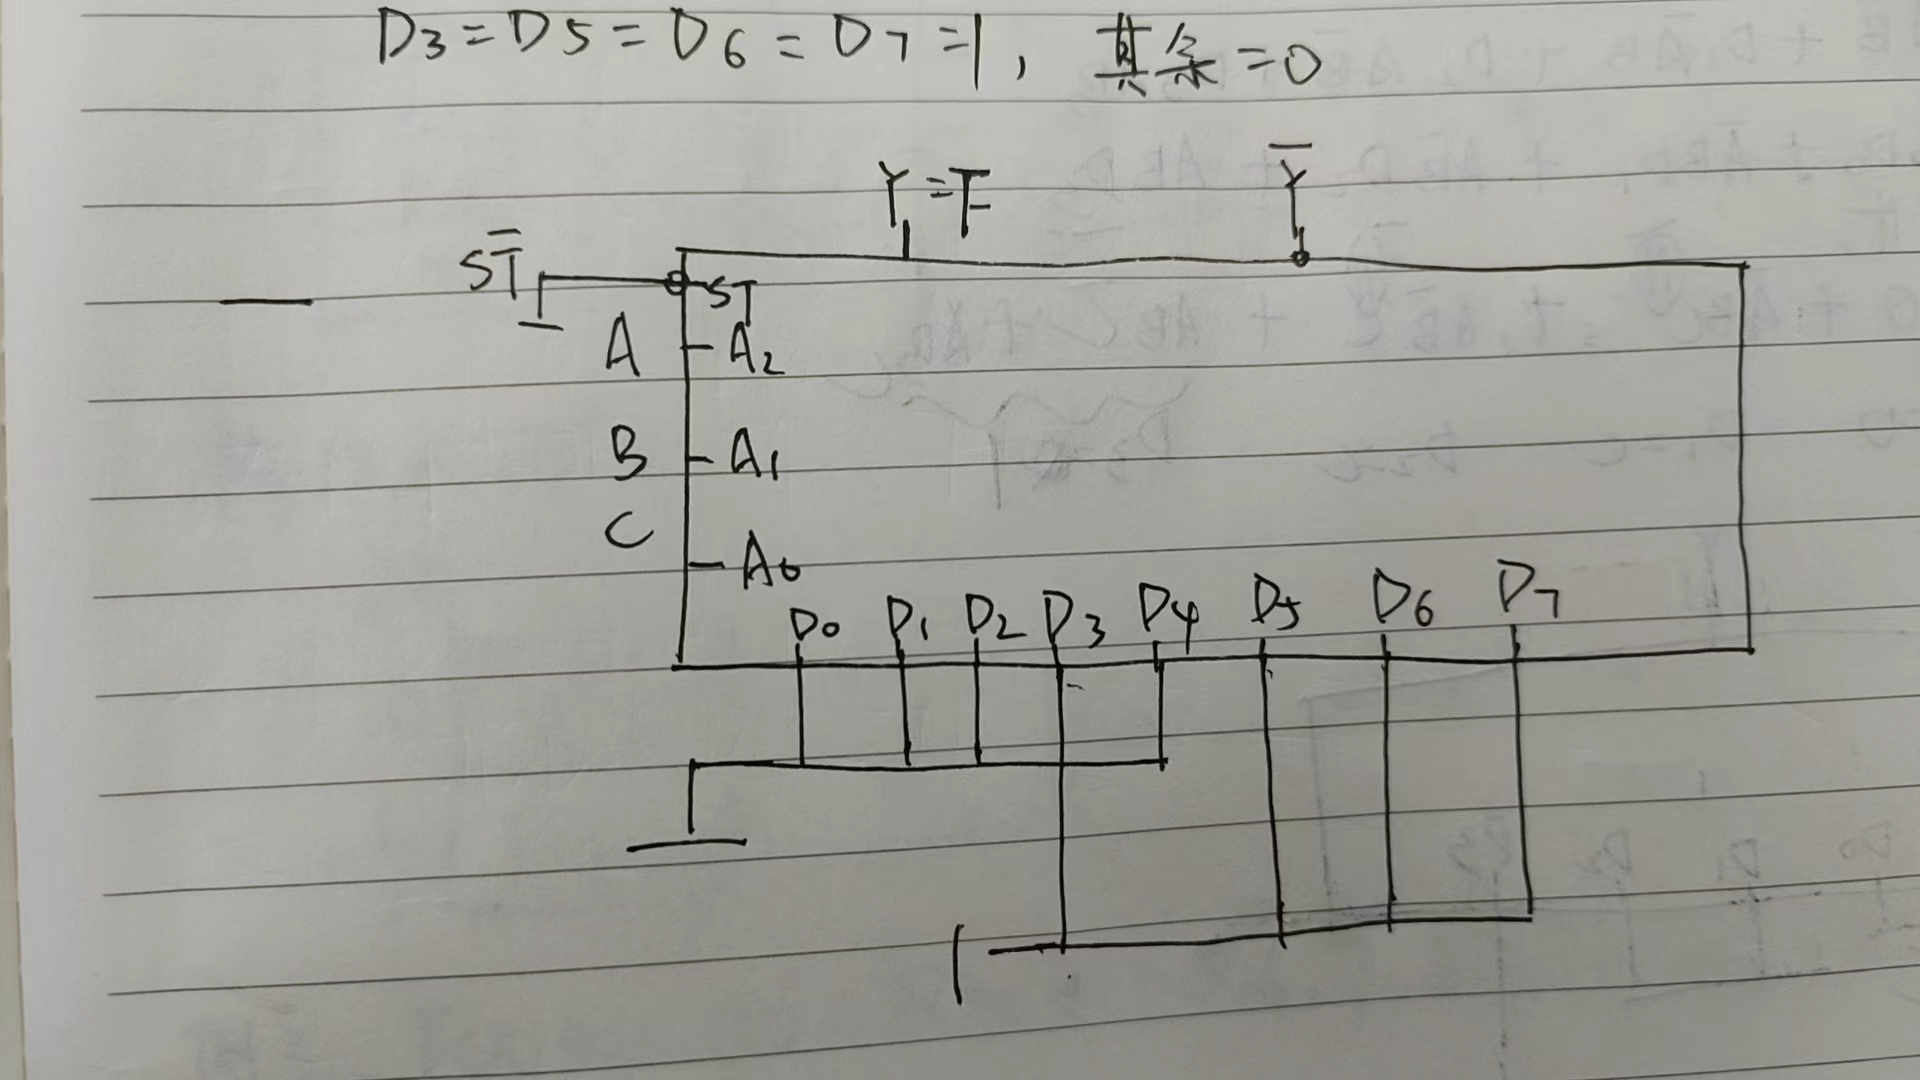 D3=D5=D6=D7=1, 其余=0
Y=F
Y̅
ST̅
ST
A
A2
B
A1
C
A0
D0 D1 D2 D3 D4 D5 D6 D7
1